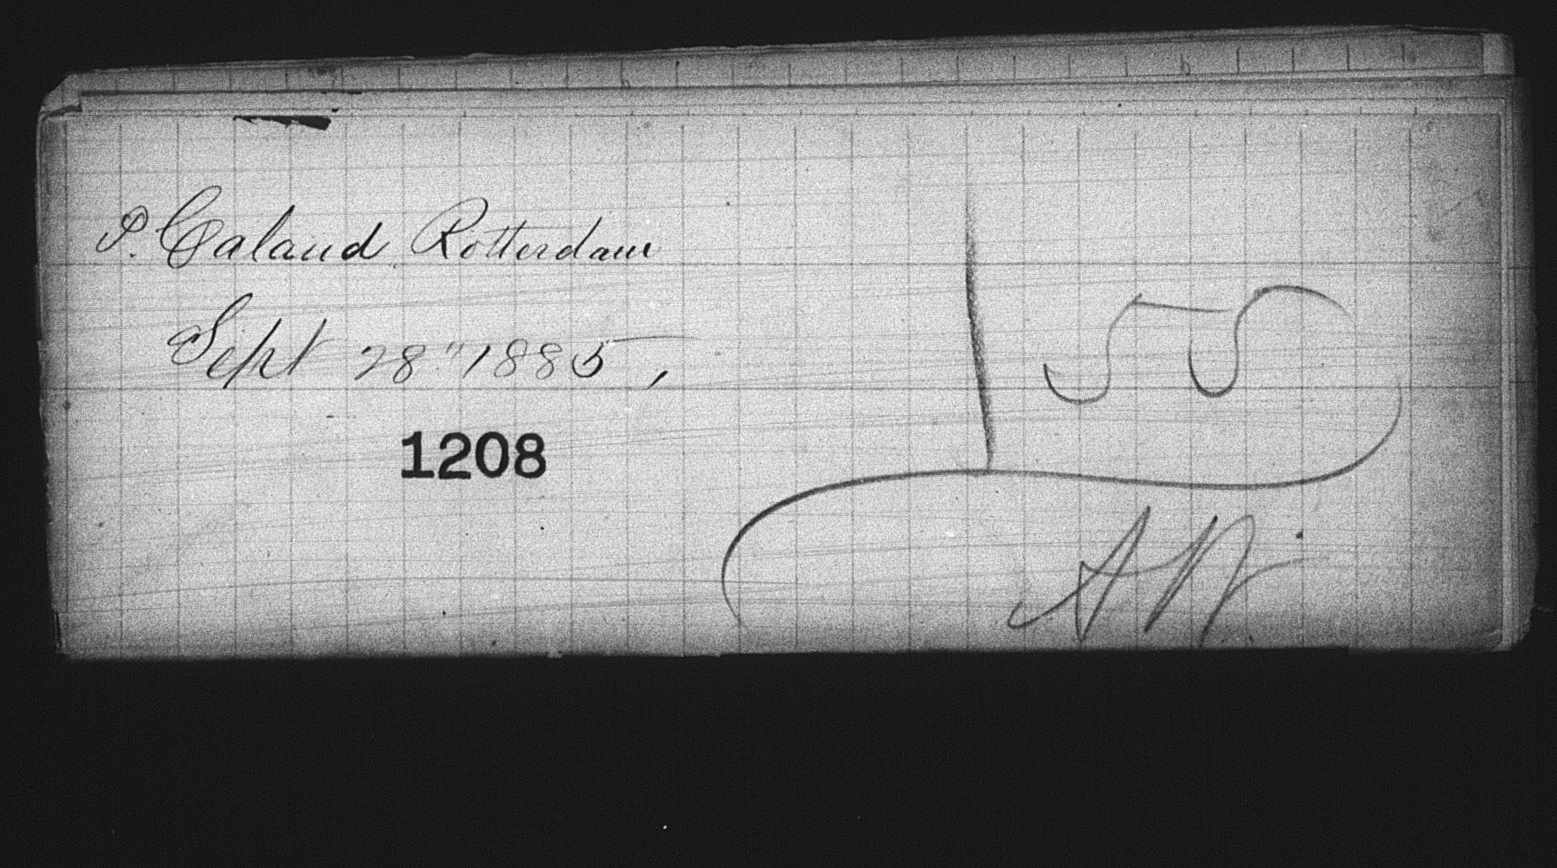 P. Caland Rotterdam
Sept 28" 1885,
1208